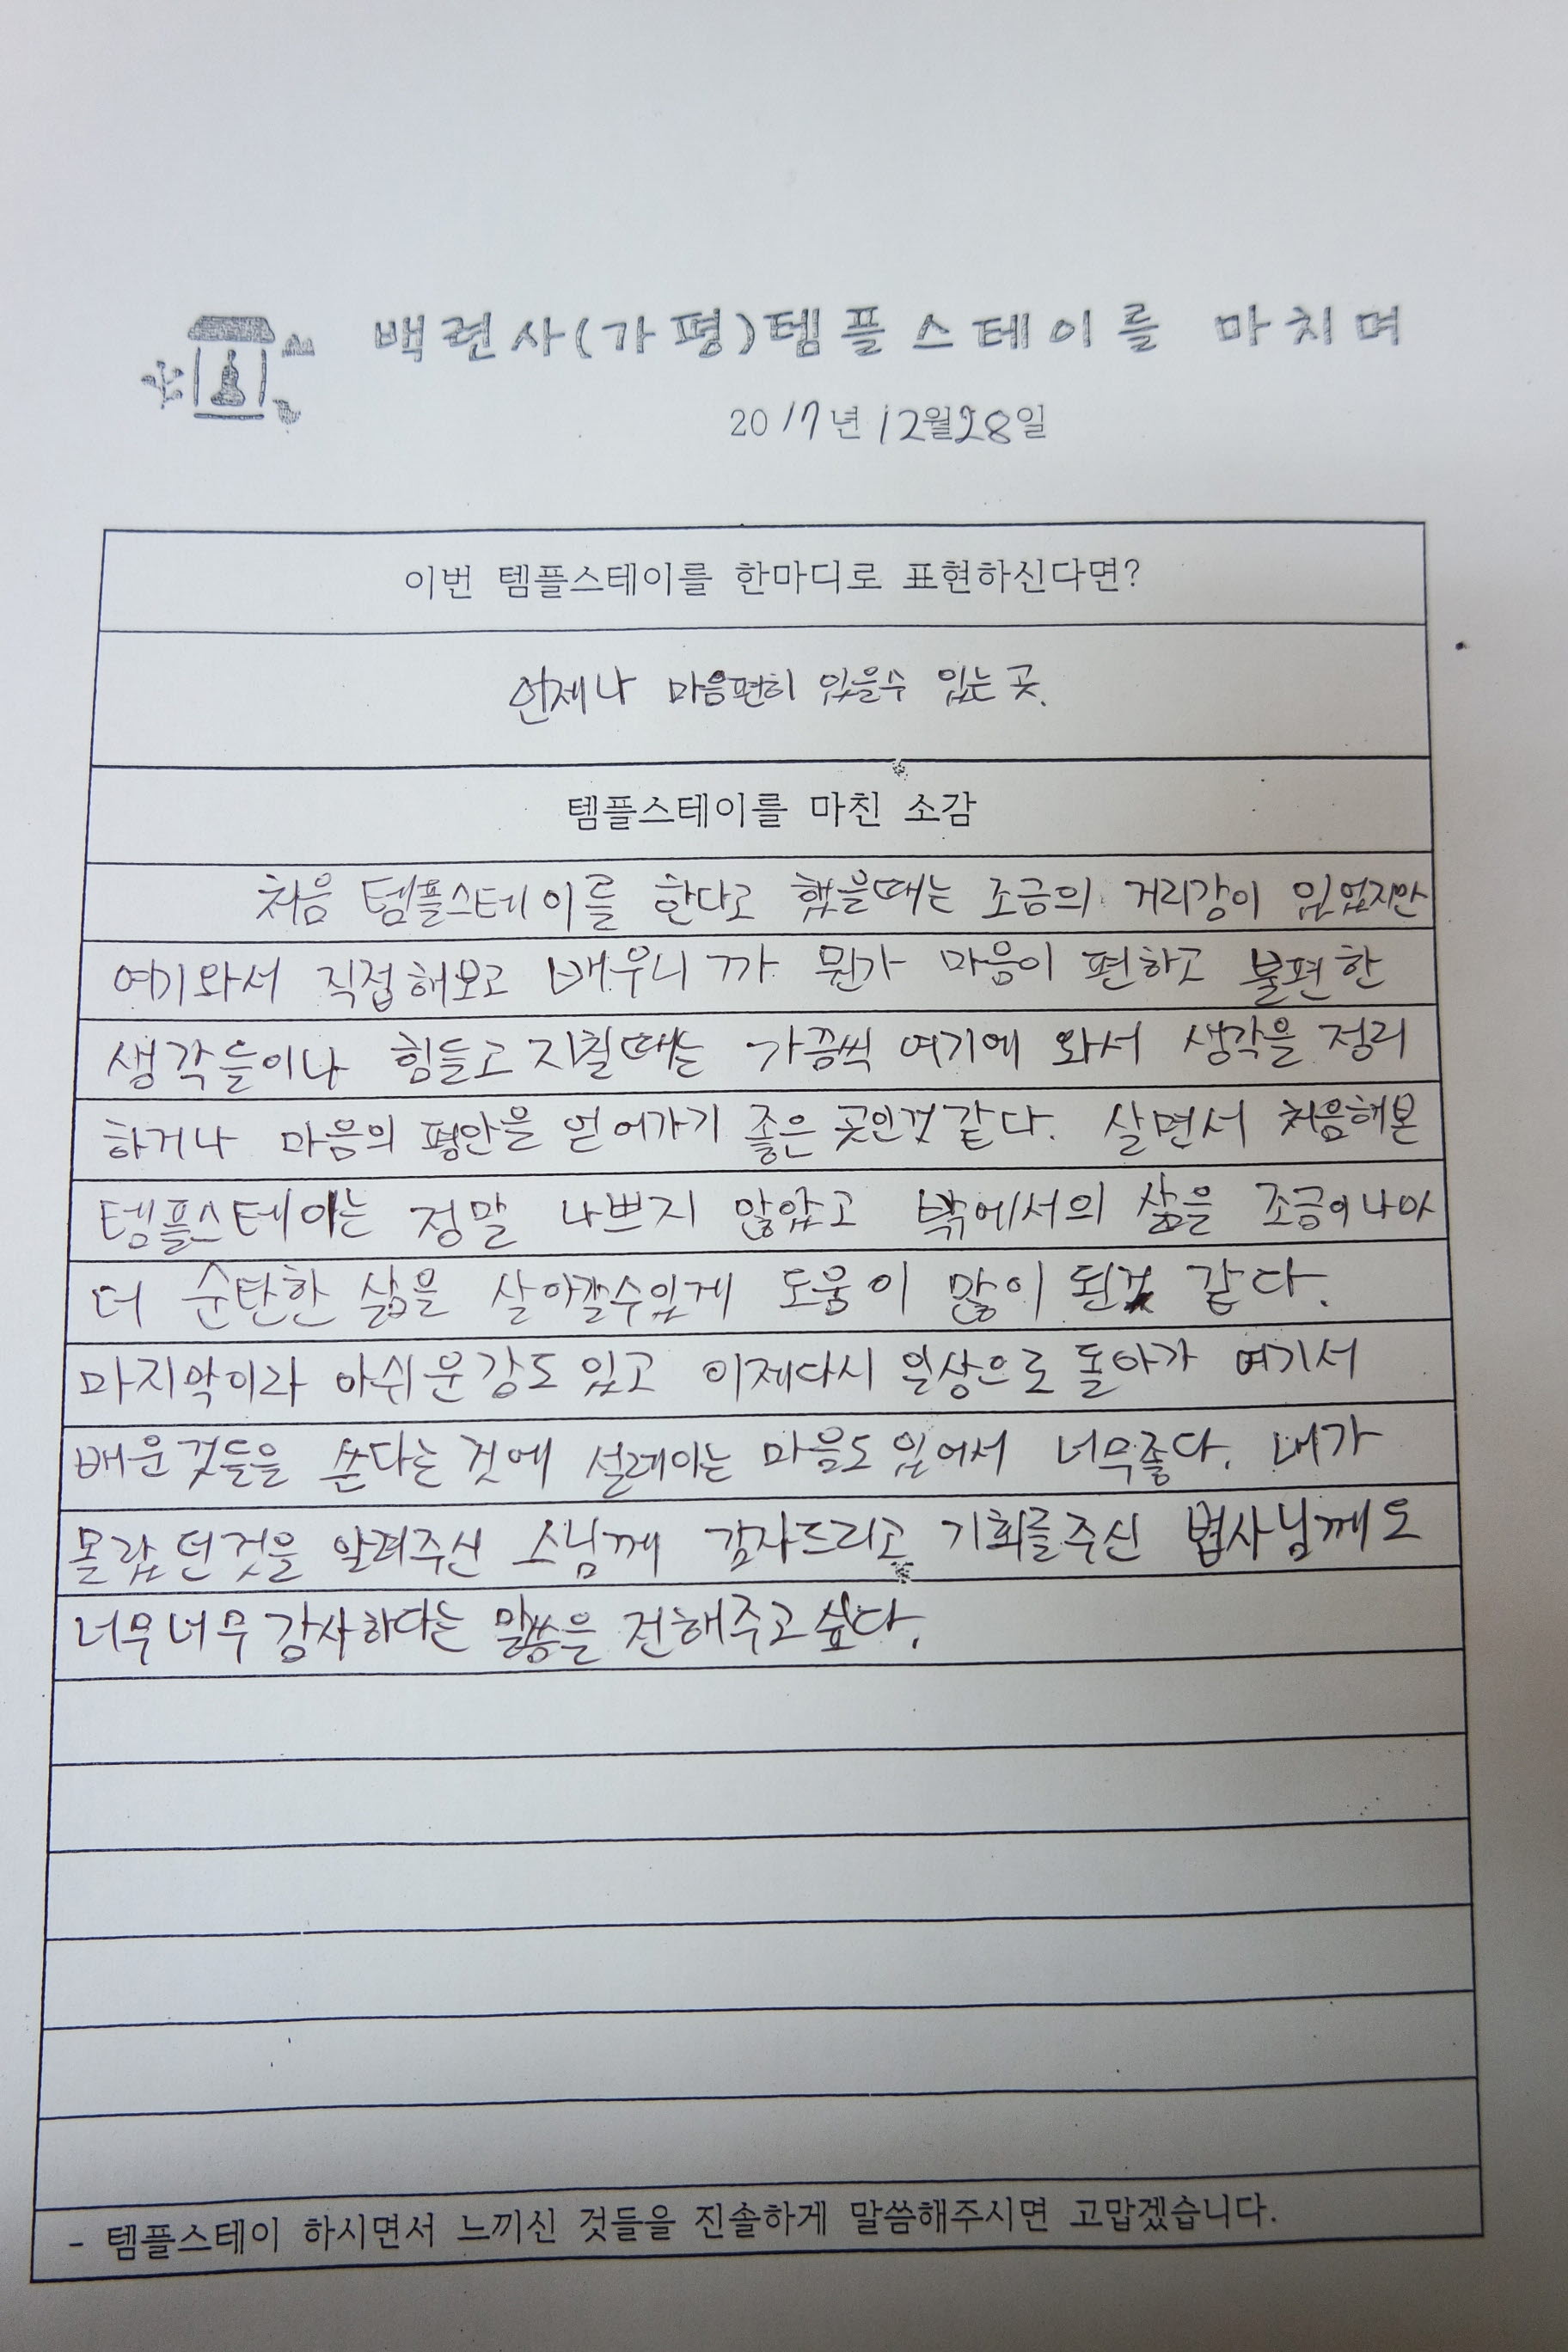 백련사(가평)템플스테이를 마치며
2017년 12월28일
이번 템플스테이를 한마디로 표현하신다면?
언제나 마음편히 있을수 있는 곳.
템플스테이를 마친 소감
처음 템플스테이를 한다고 했을때는 조금의 거리감이 있었지만
여기와서 직접해보고 배우니까 뭔가 마음이 편하고 불편한
생각들이나 힘들고 지칠때는 가끔씩 여기에 와서 생각을 정리
하거나 마음의 평안을 얻어가기 좋은 곳인것 같다. 살면서 처음해본
템플스테이는 정말 나쁘지 않았고 밖에서의 삶을 조금이나마
더 순탄한 삶을 살아갈수있게 도움이 많이 된것 같다.
마지막이라 아쉬운감도 있고 이제다시 일상으로 돌아가 여기서
배운것들을 쓴다는 것에 설레이는 마음도 있어서 너무좋다. 내가
몰랐던것을 알려주신 스님께 감사드리고 기회를주신 법사님께도
너무너무 감사하다는 말씀을 전해주고싶다.
- 템플스테이 하시면서 느끼신 것들을 진솔하게 말씀해주시면 고맙겠습니다.